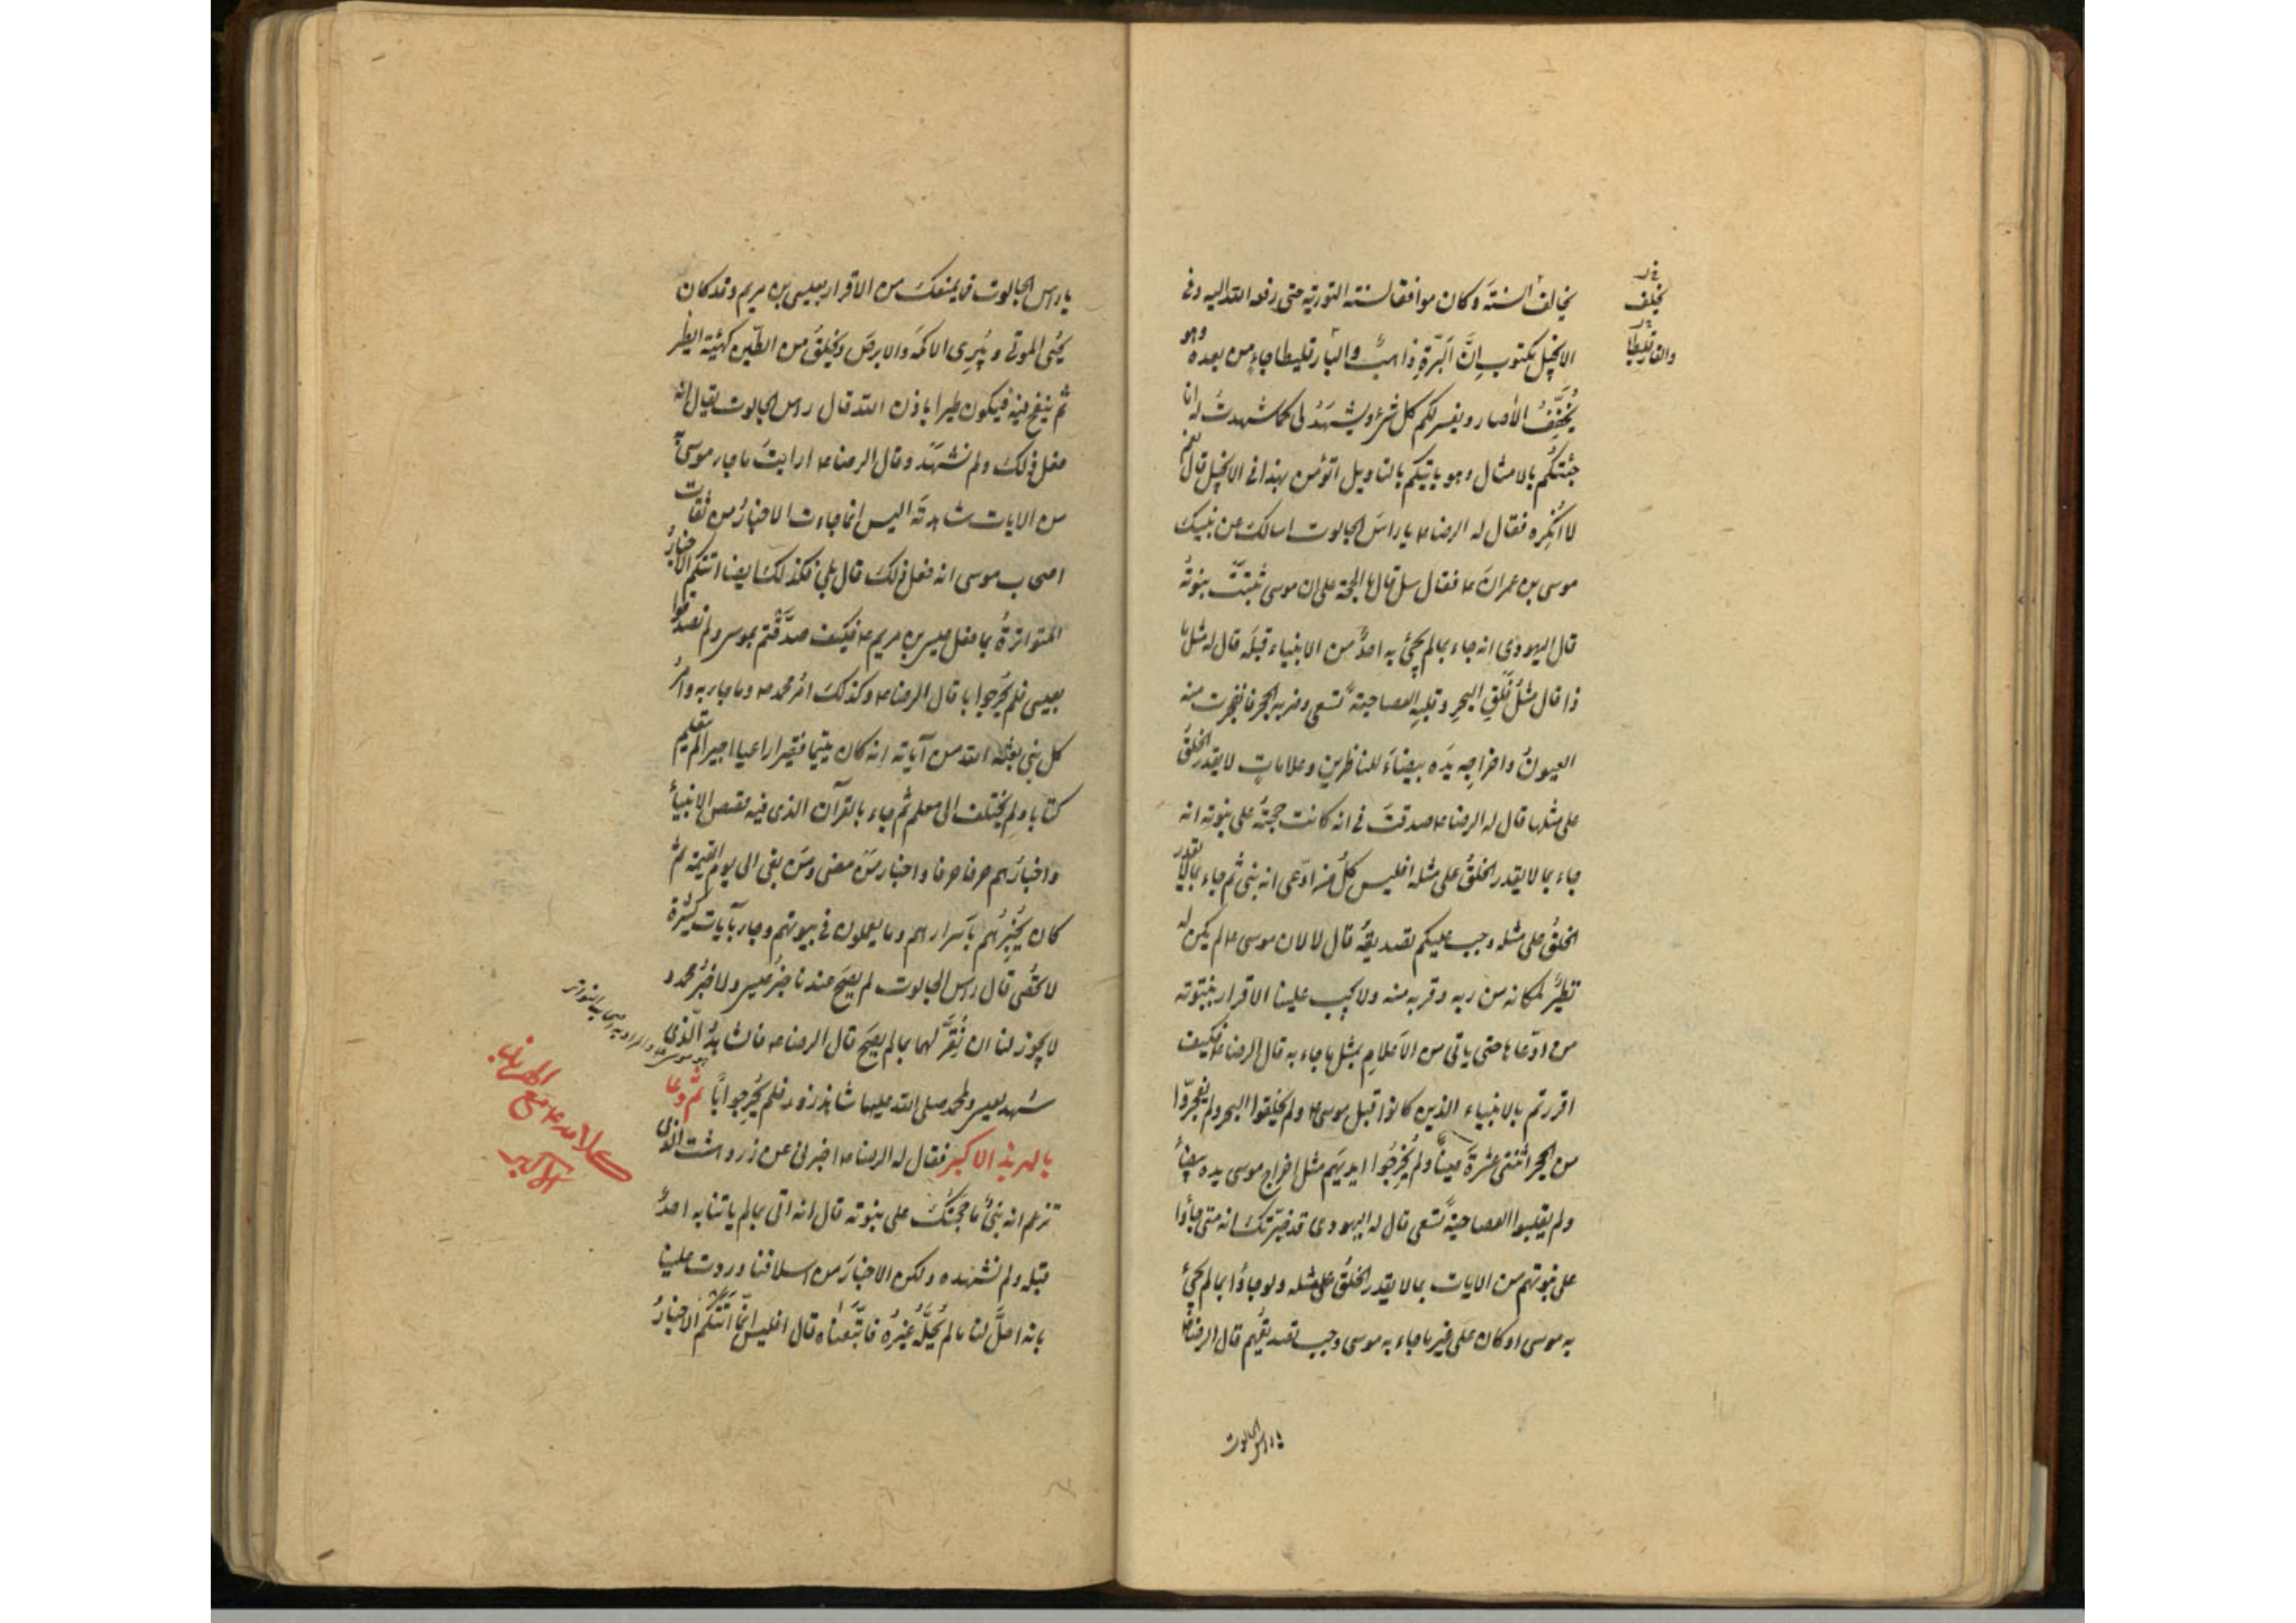 يخالف السنة وكان موافقا لسنة التورية حتى رفعه الله اليه وفي
الانجيل مكتوب ان ابن البرة ذاهب والبارقليطا جاء من بعده وهو
يخفف الآصار ويفسر لكم كل شئ ويشهد لي كما شهدت له انا
جئتكم بالامثال وهو ياتيكم بالتاويل اتؤمن بهذا في الانجيل قال نعم
لا انكره فقال له الرضا ع يا راس الجالوت اسالك عن نبيك
موسى بن عمران ع فقال سل قال ما الحجة على ان موسى ثبتت نبوته
قال اليهودي انه جاء بما لم يجئ به احد من الانبياء قبله قال له مثل ما
ذا قال مثل فلق البحر وقلبه العصا حية تسعى وضربه الحجر فانفجرت منه
العيون واخراجه يده بيضاء للناظرين وعلامات لا يقدر الخلق
على مثلها قال له الرضا ع صدقت في انه كانت حجته على نبوته انه
جاء بما لا يقدر الخلق على مثله افليس كل من ادعى انه نبي ثم جاء بما لا يقدر
الخلق على مثله وجب عليكم تصديقه قال لا لان موسى ع لم يكن له
نظير لمكانه من ربه وقربه منه ولا يجب علينا الاقرار بنبوته
من ادعاها حتى ياتي من الاعلام بمثل ما جاء به قال الرضا ع فكيف
اقررتم بالانبياء الذين كانوا قبل موسى ع ولم يفلقوا البحر ولم يفجروا
من الحجر اثنتي عشرة عينا ولم يخرجوا ايديهم مثل اخراج موسى يده بيضاء
ولم يقلبوا العصا حية تسعى قال له اليهودي قد خبرتك انه متى جاؤا
على نبوتهم من الايات بما لا يقدر الخلق على مثله ولو جاؤا بما لم يجئ
به موسى او كان على غير ما جاء به موسى وجب تصديقهم قال الرضا ع
يا راس الجالوت
يا راس الجالوت فما يمنعك من الاقرار بعيسى بن مريم وقد كان
يحيى الموتى ويبرى الاكمه والابرص ويخلق من الطين كهيئة الطير
ثم ينفخ فيه فيكون طيرا باذن الله قال راس الجالوت يقال انه
فعل ذلك ولم نشهده وقال الرضا ع ارايت ما جاء موسى به
من الايات شاهدته اليس انما جاءت الاخبار من ثقات
اصحاب موسى انه فعل ذلك قال بلى فكذلك ايضا اتتكم الاخبار
المتواترة بما فعل عيسى بن مريم ع فكيف صدقتم بموسى ولم تصدقوا
بعيسى فلم يحر جوابا قال الرضا ع وكذلك امر محمد ص وما جاء به وامر
كل نبي بعثه الله من آياته انه كان يتيما فقيرا راعيا اجيرا لم يتعلم
كتابا ولم يختلف الى معلم ثم جاء بالقرآن الذي فيه قصص الانبياء
واخبارهم حرفا حرفا واخبار من مضى ومن بقى الى يوم القيمة ثم
كان يخبرهم باسرارهم وما يعملون في بيوتهم وجاء بآيات كثيرة
لا تحصى قال راس الجالوت لم يصح عندنا خبر عيسى ولا خبر محمد و
لا يجوز لنا ان نقر لهما بما لم يصح قال الرضا ع فالشاهد الذي
شهد لعيسى ولمحمد صلى الله عليهما شاهد زور فلم يحر جوابا ثم دعا
بالهربذ الاكبر فقال له الرضا ع اخبرني عن زردهشت الذي
تزعم انه نبي ما حجتك على نبوته قال انه اتى بما لم ياتنا به احد
قبله ولم نشهده ولكن الاخبار من اسلافنا وردت علينا
بانه احل لنا ما لم يحله غيره فاتبعناه قال افليس انما اتتكم الاخبار
كلامه ع مع الهربذ
الاكبر